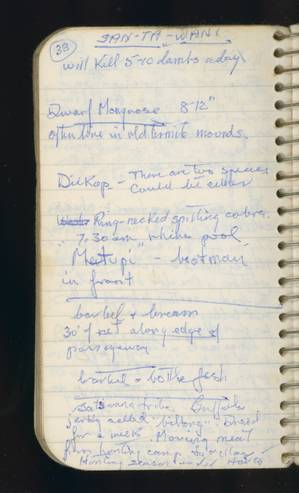 39
SAN-TA-WANI
Will Kill 5-10 lambs a day
Dwarf Mongoose 8-12"
often live in old termite mounds.
Dikkop - There are two species
Could be either
Ring-necked spitting cobra.
7.30 am
- boatman
in front
barbel & bream
30' of net along edge of
passageway
barbel & bottle fish
Buffalo
Dried
for a week. Moving meat
from hunting camp to village
Hunting season